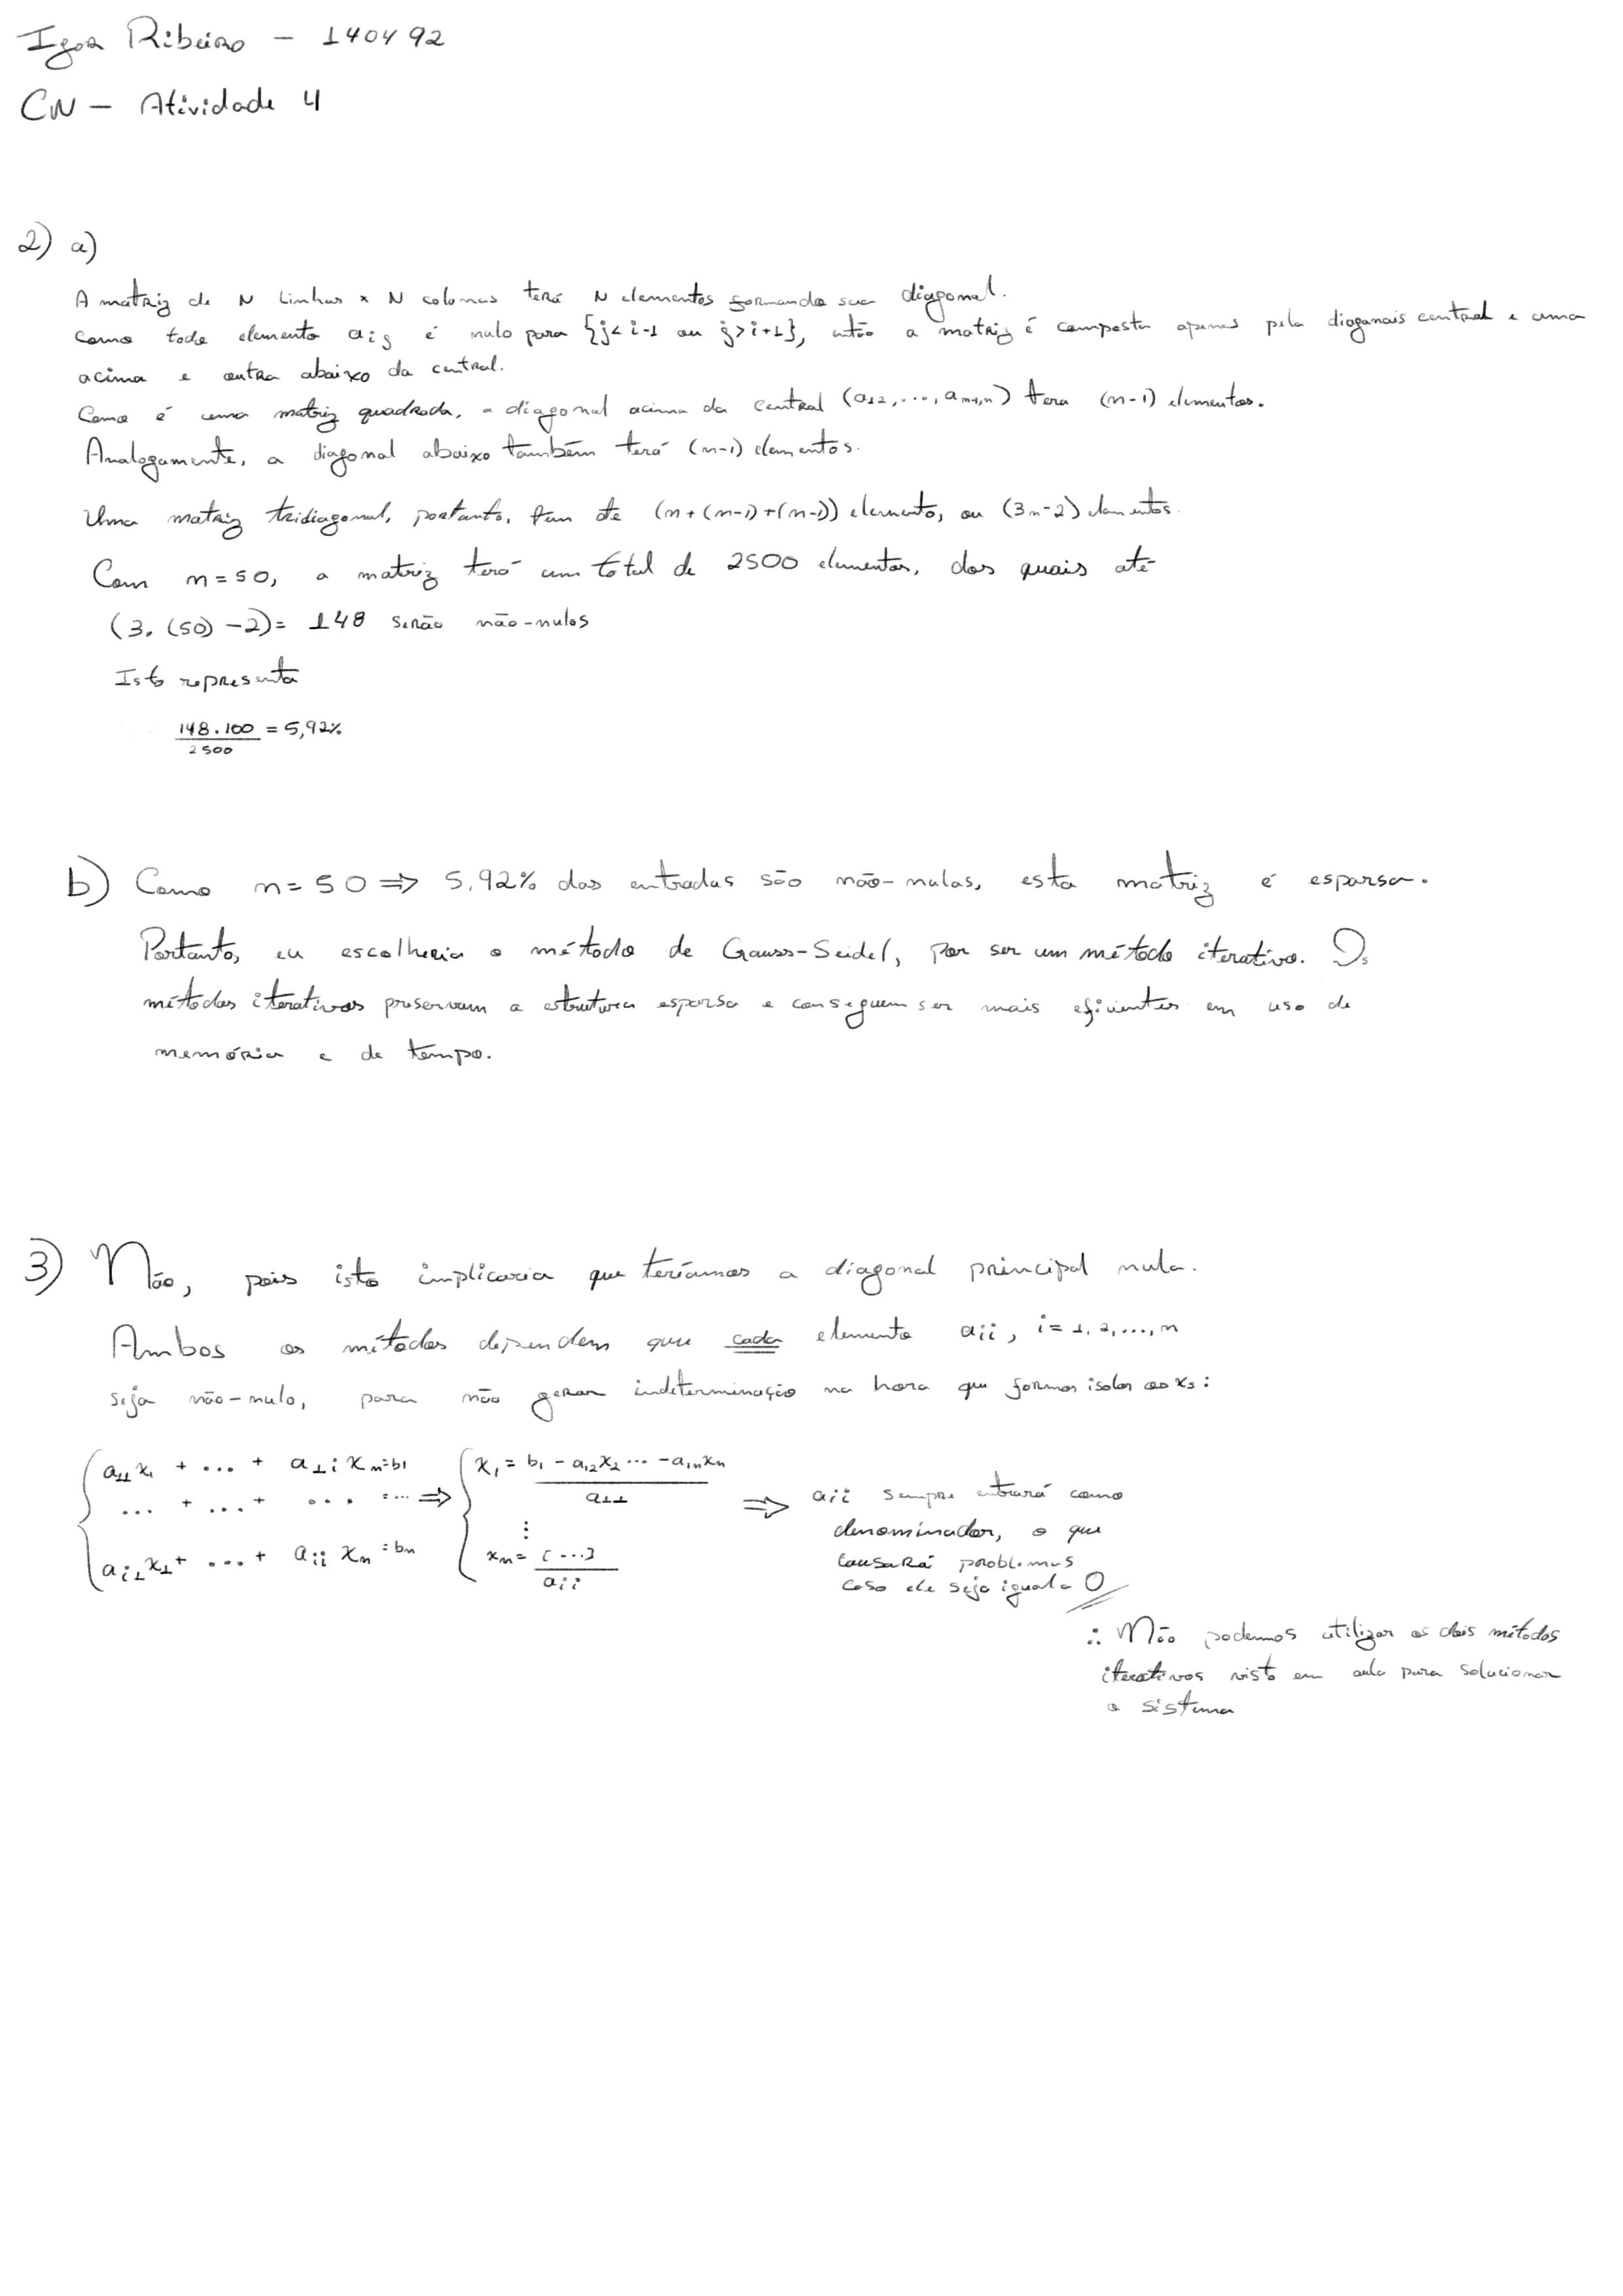 Igor Ribeiro - 140492
CN - Atividade 4
2) a)
A matriz de N linhas x N colunas terá N elementos formando sua diagonal.
Como todo elemento aij é nulo para {j<i-1 ou j>i+1}, então a matriz é composta apenas pela diagonais central e uma
acima e outra abaixo da central.
Como é uma matriz quadrada, a diagonal acima da central (a12, ..., an-1,n) terá (n-1) elementos.
Analogamente, a diagonal abaixo também terá (n-1) elementos.
Uma matriz tridiagonal, portanto, tem até (n+(n-1)+(n-1)) elemento, ou (3n-2) elementos.
Com n=50, a matriz terá um total de 2500 elementos, dos quais até
(3.(50)-2)= 148 serão não-nulos
Isto representa
148.100 = 5,92%
2500
b) Como n=50 ⇒ 5,92% das entradas são não-nulas, esta matriz é esparsa.
Portanto, eu escolheria o método de Gauss-Seidel, por ser um método iterativo. Os
métodos iterativos preservam a estrutura esparsa e conseguem ser mais eficientes em uso de
memória e de tempo.
3) Não, pois isto implicaria que teríamos a diagonal principal nula.
Ambos os métodos dependem que cada elemento aii, i=1,2,...,n
seja não-nulo, para não gerar indeterminação na hora que formos isolar os xs:
a11x1 + ... + a1i xn=b1 ⇒ x1 = b1 - a12x2 ... - a1nxn
a11
... + ... + ... = ...
ai1x1+ ... + aii xn = bn
⋮
xn = [...]
aii
⇒ aii sempre entrará como
denominador, o que
causará problemas
caso ele seja igual a 0
∴ Não podemos utilizar os dois métodos
iterativos visto em aula para solucionar
o sistema